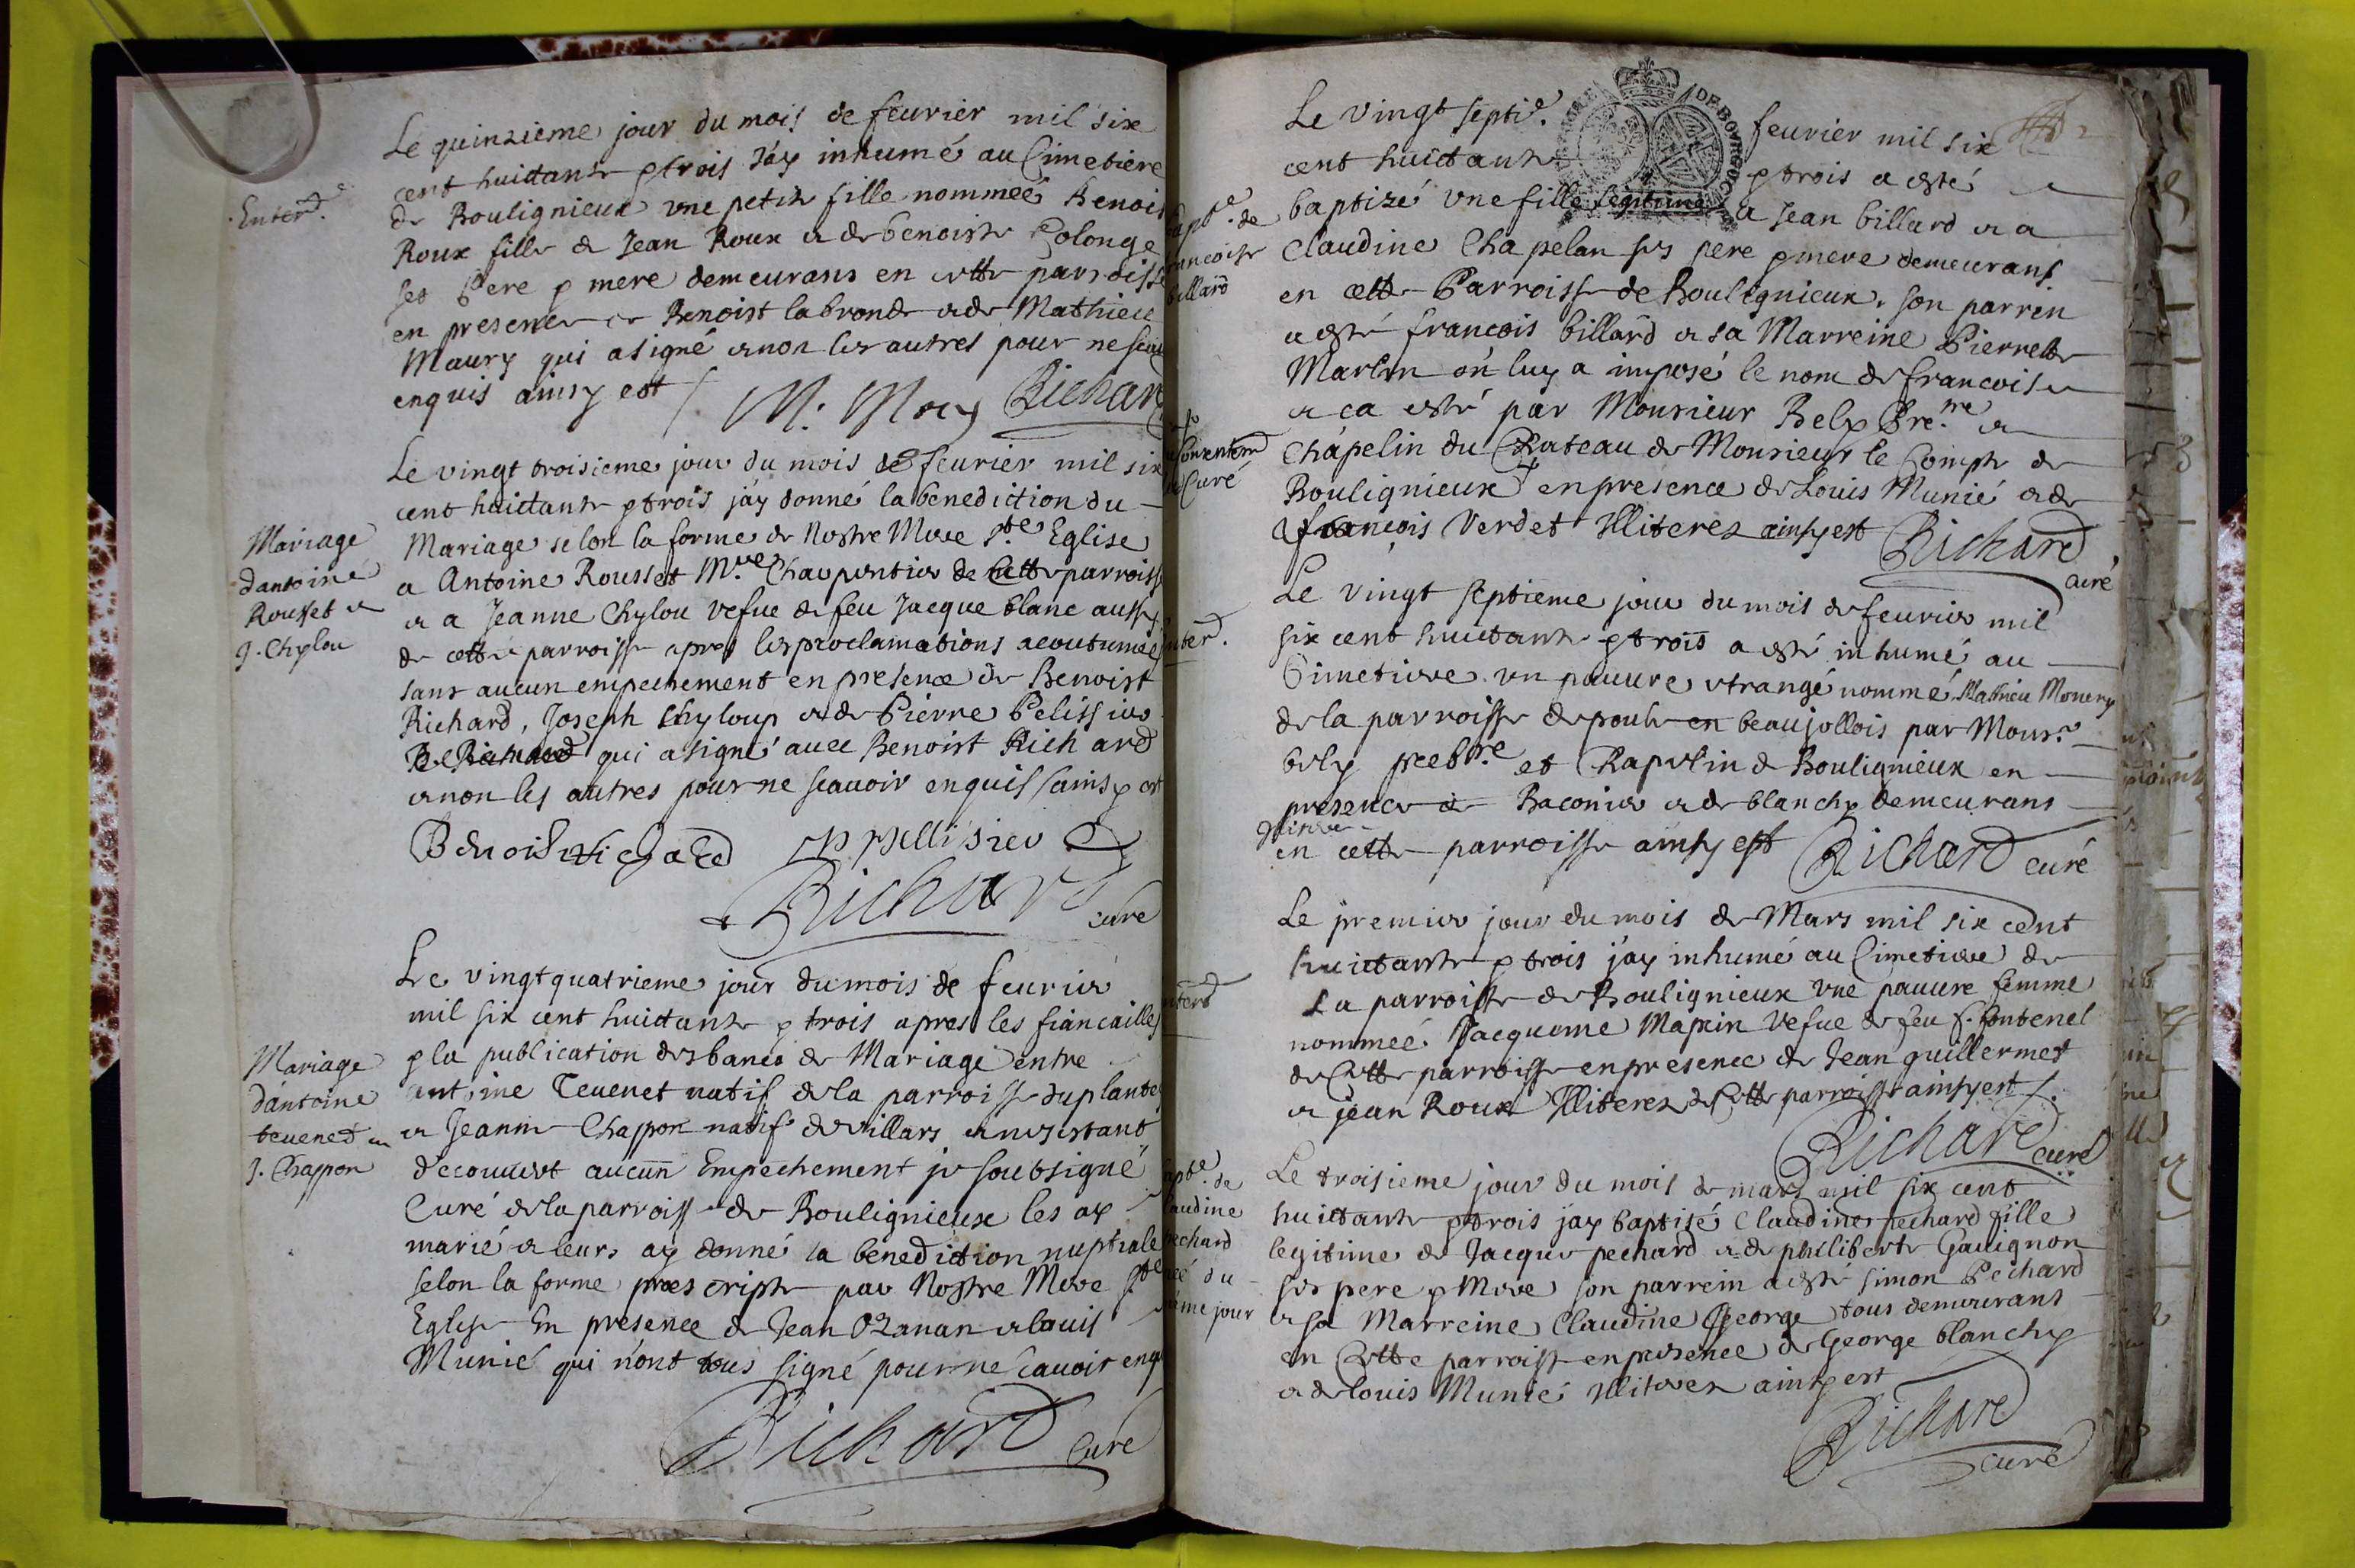 Le quinzieme jour du mois de feurier mil six
cent huictante & trois J'ay inhumé au Cimetiere
Enterᵈ.
de Boulignieux vne petite fille nommée Benois
Roux fille de Jean Roux & de benoiste Colonge
ses Pere & mere demeurans en cette parroisse
en presence de Benoist labronde & de Mathieu
Maury qui a signé & non les autres pour ne scau
enquis ainsy est
M. Mory Richard
Le vingt troisieme jour du mois de feurier mil six
cent huictante & trois j'ay donné la benediction du
Mariage selon la forme de Nostre Mere Sᵗᵉ Eglise
Mariage
d'antoine
Rousset &
J. Chylou
a Antoine Rousset Mʳᵉ Charpentier de Cette parroisse
& a Jeanne Chylou vefue de feu Jacque blanc aussy
de cette parroisse apres les proclamations acoutumées
sans aucun empechement en presence de Benoist
Richard, Joseph Chyloup & de Pierre Pelissier
B. Richard qui a signé auec Benoist Richard
& non les autres pour ne scauoir enquis ainsy est
Benoist richard P pellisier
Richard curé
Le vingt quatrieme jour du mois de feurier
mil six cent huictante & trois apres les fiancailles
& la publication des bancs de Mariage entre
Mariage
d'antoine
teuenet &
J. Chappon
antoine Teuenet natif de la parroisse du plantey
& Jeanne Chappon natif de villars & ne s'estant
decouuert aucun Empechement je soubsigné
Curé de la parroisse de Boulignieux les ay
marié & leurs ay donné la benediction nuptiale
selon la forme prescripte par Nostre Mere Sᵗᵉ
Eglise En presence de Jean Ozanan & louis
Munié qui n'ont tous signé pour ne scauoir enq
Richard Curé
Le vingt septiᵉ. feurier mil six
cent huictante & trois a esté
baptᵉ. de
francoise
billard
baptizé vne fille legitime a Jean billard & a
Claudine Chapelan ses pere & mere demeurans
en cette Parroisse de Boulignieux. son parrin
a esté francois billard & sa Marreine Pierrette
Marlin on luy a imposé le nom de francoise
& ca esté par Monsieur Bely Preᵗʳᵉ. &
du Consentemᵈ
du Curé
Chapelin du Chateau de Monsieur le Compte de
Boulignieux en presence de Louis Munié & de
francois Verdet Illiterez ainsy est Richard
curé
Le vingt septieme jour du mois de feurier mil
Enterᵈ.
six cent huictante & trois a esté inhumé au
Cimetiere vn pauure etrangé nommé Mathieu Monery
de la parroisse de poule en beaujollois par Monsʳ
bely preebᵗʳᵉ et Chapelin de Boulignieux en
presence de Baconier & de blanchy demeurans
Illiterez
en cette parroisse ainsy est Richard curé
Le premier jour du mois de Mars mil six cent
Enterᵈ
huictante & trois j'ay inhumé au Cimetiere de
La parroisse de Boulignieux vne pauure femme
nommée Jacqueme Mapin vefue de feu f. fontenel
de Cette parroisse en presence de Jean guillermet
& jean Roux Illiterez de Cette parroisse ainsy est
Richard curé
baptᵉ. de
Claudine
pechard
née du
même jour
Le troisieme jour du mois de mars mil six cent
huictante & trois j'ay baptisé Claudine pechard fille
legitime de Jacque pechard & de philiberte Gauignon
ses pere & Mere son parrein a esté simon Pechard
& sa Marreine Claudine George tous demeurans
en Cette parroisse en presence de George blanchy
& de louis Munié Illiterez ainsy est
Richard
curé